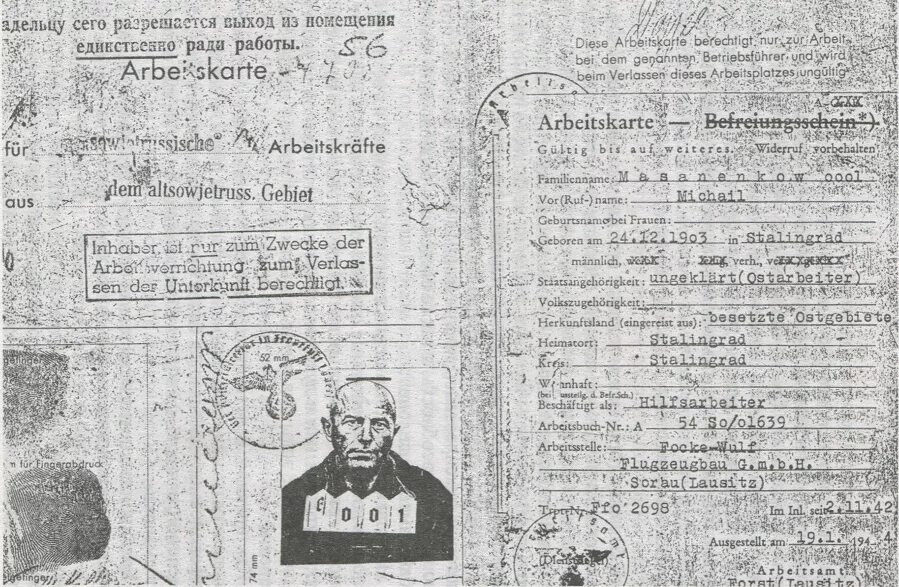 адельцу сего разрешается выход из помещения
единственно ради работы.
56
Arbeitskarte
für sowjetrussische Arbeitskräfte
aus dem altsowjetruss. Gebiet
Inhaber ist nur zum Zwecke der
Arbeitsverrichtung zum Verlas-
sen der Unterkunft berechtigt.
52 mm
gefinger
m für Fingerabdruck
gefinger
74 mm
0001
Diese Arbeitskarte berechtigt nur zur Arbeit
bei dem genannten Betriebsführer und wird
beim Verlassen dieses Arbeitsplatzes ungültig
Arbeitskarte — Befreiungsschein*)
Gültig bis auf weiteres. Widerruf vorbehalten
Familienname: Masanenkow oool
Vor(Ruf-)name: Michail
Geburtsname bei Frauen:
Geboren am 24.12.1903 in Stalingrad
männlich, verh.,
Staatsangehörigkeit: ungeklärt(Ostarbeiter)
Volkszugehörigkeit:
Herkunftsland (eingereist aus): besetzte Ostgebiete
Heimatort: Stalingrad
Kreis: Stalingrad
Wohnhaft:
(bei Ausstellg. d. Befr.Sch.)
Beschäftigt als: Hilfsarbeiter
Arbeitsbuch-Nr.: A 54 So/o1639
Arbeitsstelle: Focke-Wulf
Flugzeugbau G.m.b.H.
Sorau(Lausitz)
Ffo 2698 Im Inl. seit 2.11.42
Ausgestellt am 19.1. 194 4
(Dienstsiegel)
Arbeitsamt
Forst(Lausitz)